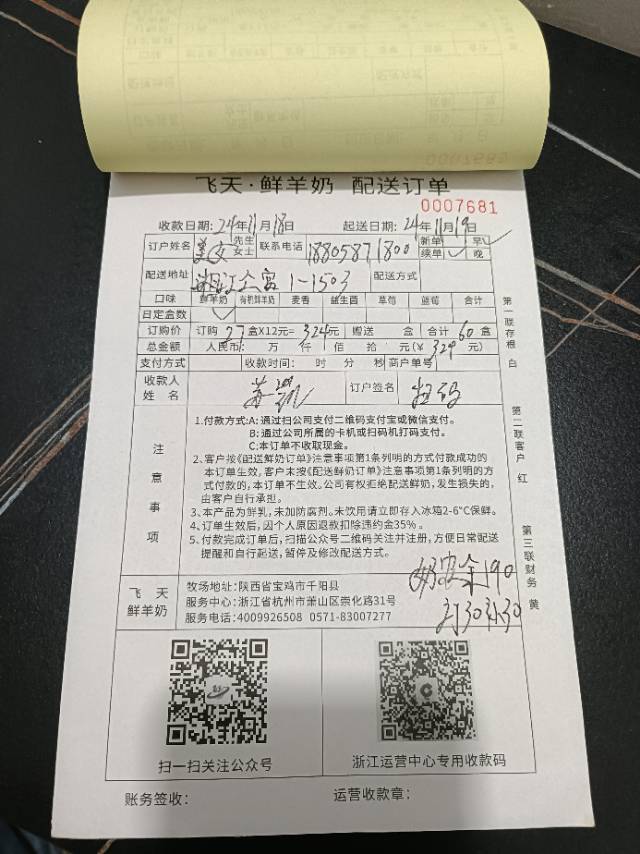 飞天·鲜羊奶 配送订单
0007681
收款日期: 24年11月18日 起送日期: 24年11月19日
订户姓名 先生 女士 联系电话 18805871800 新单 早✓ 续单✓ 晚
配送地址 湘江公寓 1-1503 配送方式
口味 鲜羊奶 有机鲜羊奶 麦香 益生菌 草莓 蓝莓 合计
日定盒数 ✓
订购价 订购 27 盒X12元= 324元 赠送 盒 合计 60 盒
总金额 人民币: 万 仟 佰 拾 元(¥ 324 元)
支付方式 收款时间: 时 分 秒 商户单号
收款人姓名 订户签名 扫码
注意事项
1.付款方式:A:通过扫公司支付二维码支付宝或微信支付。
B:通过公司所属的卡机或扫码机打码支付。
C:本订单不收取现金。
2、客户按《配送鲜奶订单》注意事项第1条列明的方式付款成功的
本订单生效,客户未按《配送鲜奶订单》注意事项第1条列明的方
式付款,本订单不生效。公司有权拒绝配送鲜奶,发生损失的,
由客户自行承担。
3、本产品为鲜乳,未加防腐剂。未饮用请立即存入冰箱2-6℃保鲜。
4、订单生效后,因个人原因退款扣除违约金35%。
5、付款完成订单后,扫描公众号二维码关注并注册,方便日常配送
提醒和自行起送,暂停及修改配送方式。
190
订30补30
飞天鲜羊奶
牧场地址:陕西省宝鸡市千阳县
服务中心:浙江省杭州市萧山区崇化路31号
服务电话:4009926508 0571-83007277
扫一扫关注公众号 浙江运营中心专用收款码
账务签收: 运营收款章:
第一联存根 白
第二联客户 红
第三联财务 黄